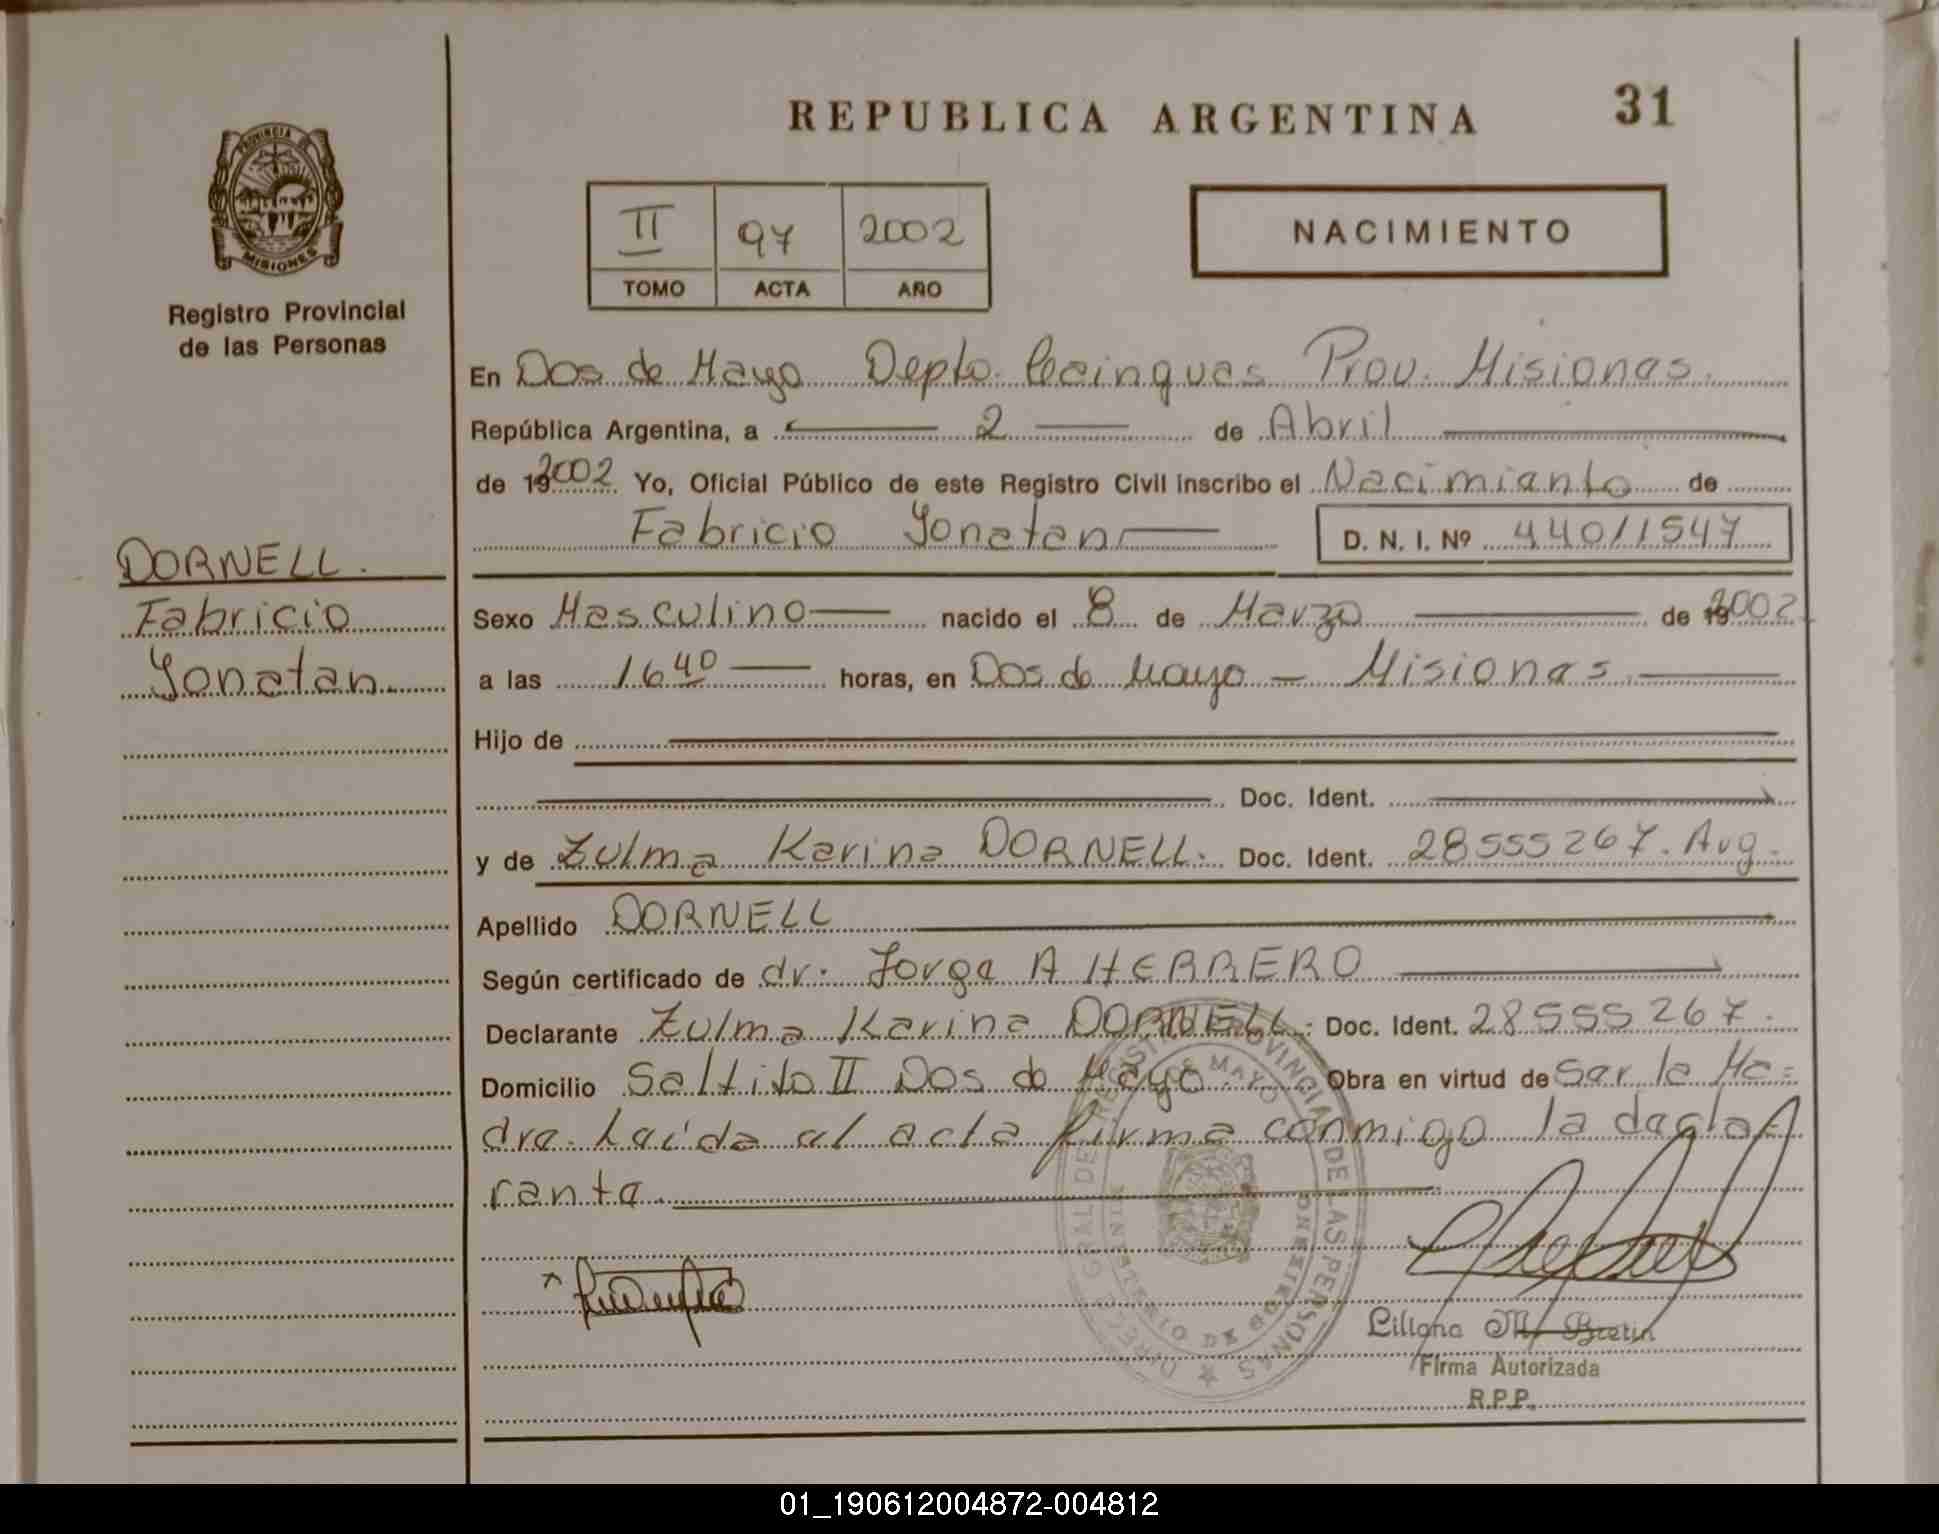 REPUBLICA ARGENTINA 31
PROVINCIA DE
MISIONES
Registro Provincial
de las Personas
II 97 2002
TOMO ACTA AÑO
NACIMIENTO
En Dos de Mayo Depto. Cainguas Prov. Misiones.
República Argentina, a 2 de Abril
de 192002 Yo, Oficial Público de este Registro Civil inscribo el Nacimiento de
Fabricio Yonatan D. N. I. Nº 44011547
DORNELL.
Fabricio
Yonatan.
Sexo Masculino nacido el 8 de Marzo de 192002
a las 16 40 horas, en Dos de Mayo - Misiones
Hijo de
Doc. Ident.
y de Zulma Karina DORNELL. Doc. Ident. 28555267. Arg.
Apellido DORNELL
Según certificado de dr. Jorge A HERRERO
Declarante Zulma Karina DORNELL. Doc. Ident. 28555267.
Domicilio Saltito II Dos de Mayo Obra en virtud de ser la Ma=
dre. Leída el acta firma conmigo la decla=
rante.
DIREC. GRAL. DE REGISTRO PROVINCIAL DE LAS PERSONAS
MINISTERIO DE GOBIERNO
DOS DE MAYO
Liliana M. Bretin
Firma Autorizada
R.P.P.
01_190612004872-004812